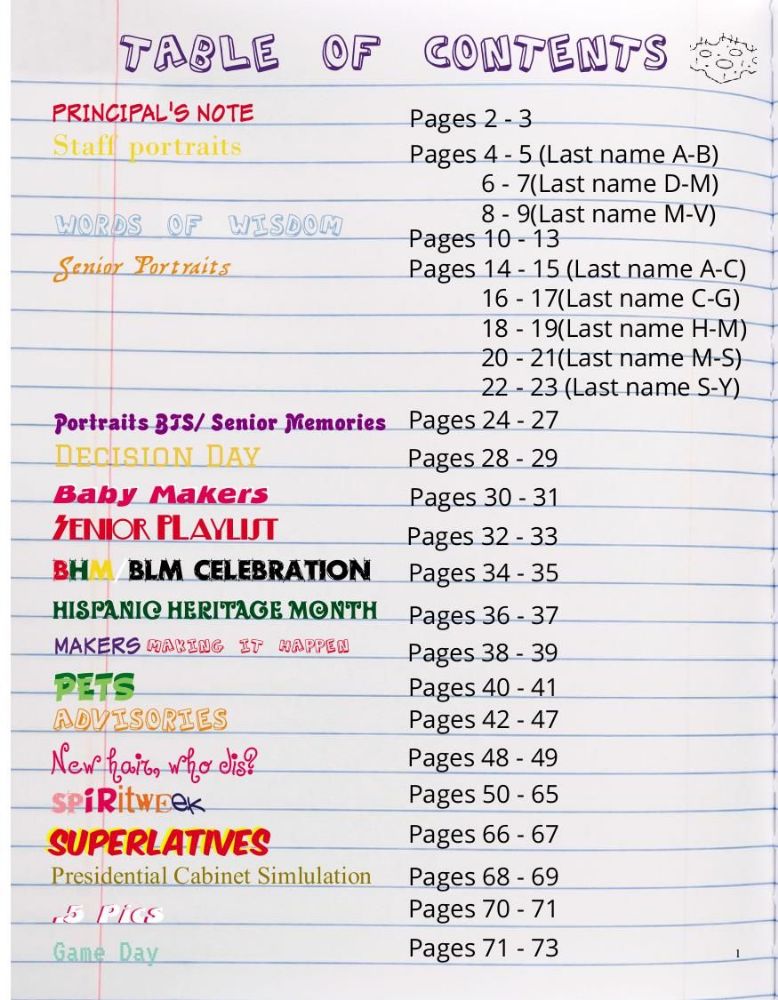 TABLE OF CONTENTS
PRINCIPAL'S NOTE Pages 2 - 3
Staff portraits Pages 4 - 5 (Last name A-B)
6 - 7(Last name D-M)
8 - 9(Last name M-V)
WORDS OF WISDOM Pages 10 - 13
Senior Portraits Pages 14 - 15 (Last name A-C)
16 - 17(Last name C-G)
18 - 19(Last name H-M)
20 - 21(Last name M-S)
22 - 23 (Last name S-Y)
Portraits BTS/ Senior Memories Pages 24 - 27
DECISION DAY Pages 28 - 29
Baby Makers Pages 30 - 31
SENIOR PLAYLIST Pages 32 - 33
BHM/BLM CELEBRATION Pages 34 - 35
HISPANIC HERITAGE MONTH Pages 36 - 37
MAKERS MAKING IT HAPPEN Pages 38 - 39
PETS Pages 40 - 41
ADVISORIES Pages 42 - 47
New hair, who dis? Pages 48 - 49
SPiRitWEek Pages 50 - 65
SUPERLATIVES Pages 66 - 67
Presidential Cabinet Simlulation Pages 68 - 69
.5 Pics Pages 70 - 71
Game Day Pages 71 - 73
1